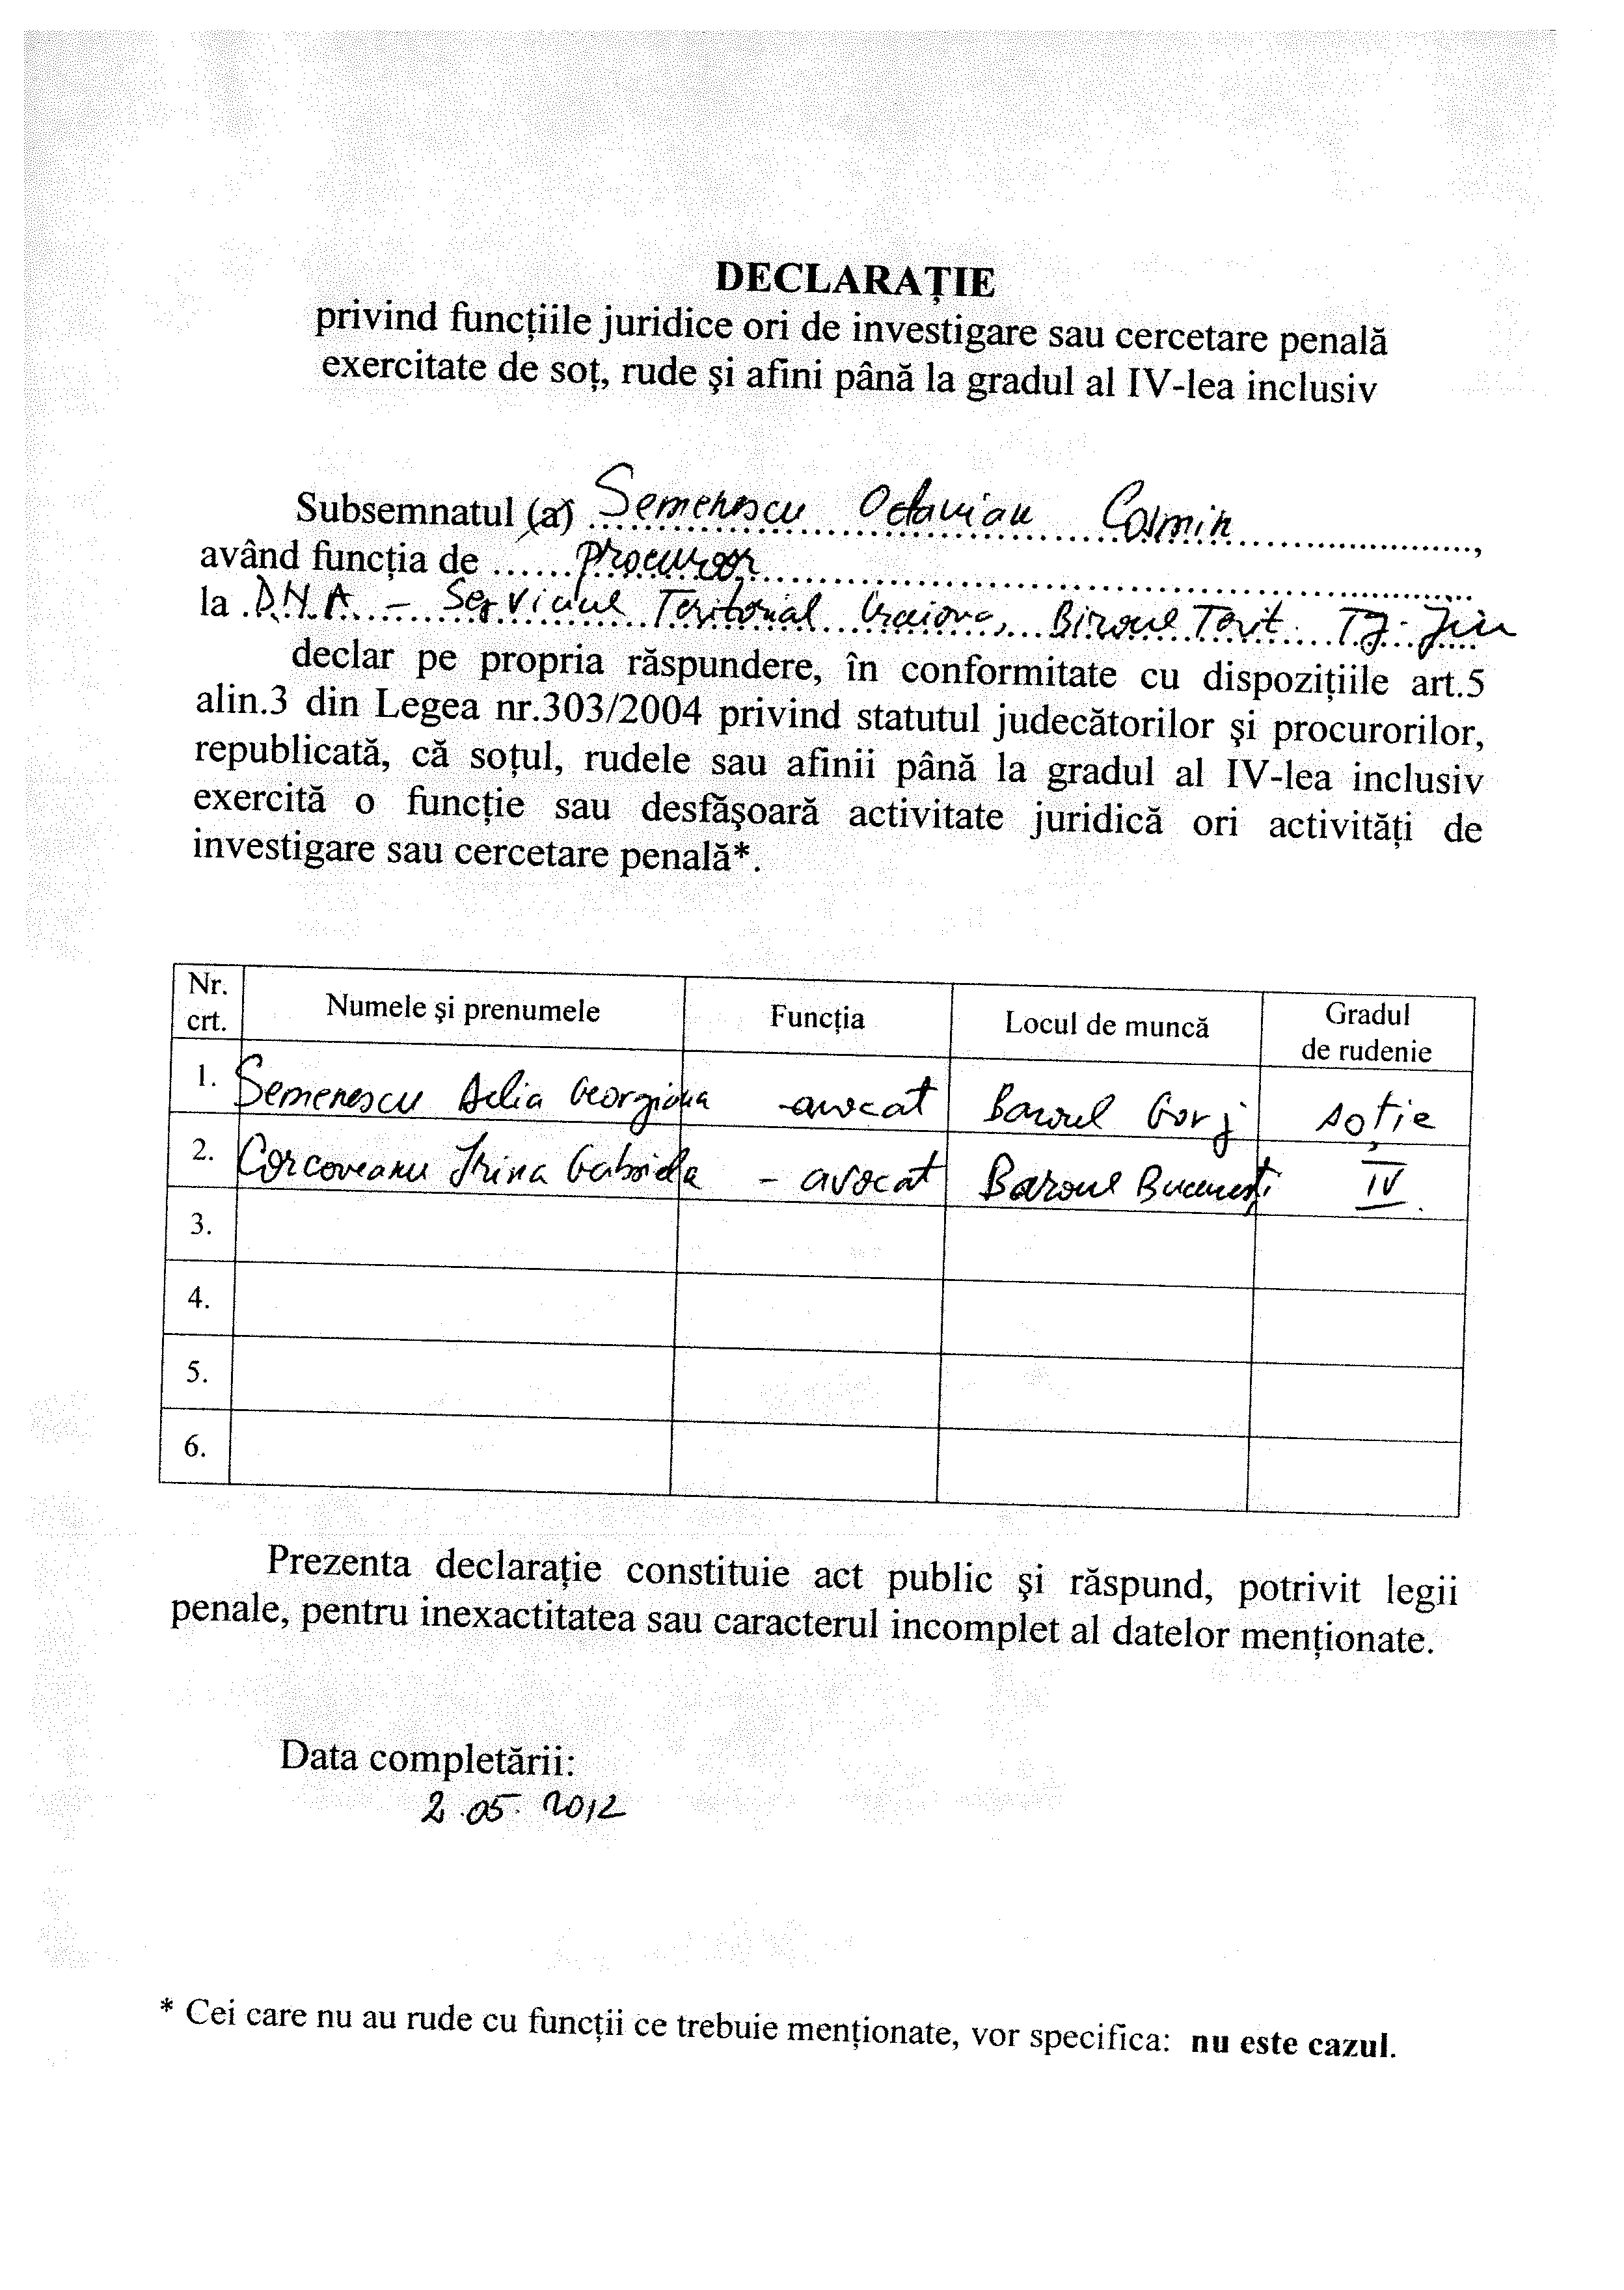 DECLARAŢIE
privind funcţiile juridice ori de investigare sau cercetare penală
exercitate de soţ, rude şi afini până la gradul al IV-lea inclusiv
Subsemnatul (a) Semenescu Octavian Cosmin,
având funcţia de procuror
la D.N.A. – Serviciul Teritorial Craiova, Biroul Terit. Tg. Jiu
declar pe propria răspundere, în conformitate cu dispoziţiile art.5
alin.3 din Legea nr.303/2004 privind statutul judecătorilor şi procurorilor,
republicată, că soţul, rudele sau afinii până la gradul al IV-lea inclusiv
exercită o funcţie sau desfăşoară activitate juridică ori activităţi de
investigare sau cercetare penală*.
Nr. crt. Numele şi prenumele Funcţia Locul de muncă Gradul de rudenie
1. Semenescu Delia Georgiana - avocat Baroul Gorj soţie
2. Corcoveanu Irina Gabriela - avocat Baroul Bucureşti IV
3.
4.
5.
6.
Prezenta declaraţie constituie act public şi răspund, potrivit legii
penale, pentru inexactitatea sau caracterul incomplet al datelor menţionate.
Data completării:
2.05.2012
* Cei care nu au rude cu funcţii ce trebuie menţionate, vor specifica: nu este cazul.